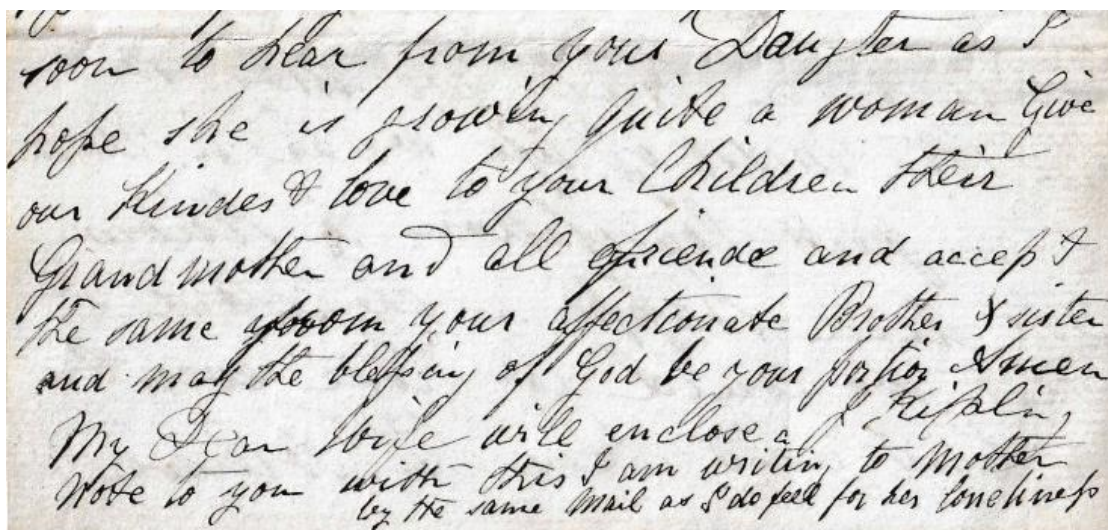 soon to hear from your Daugter as I
hope she is growing quite a woman Give
our Kindest love to your Children their
Grandmother and all friende and accept
the same from your affectionate Brother & sister
and may the blessing of God be your portion Amen
J Kipling
My Dear wife will enclose a
Note to you with this I am writing to Mother
by the same Mail as I do feel for her loneliness